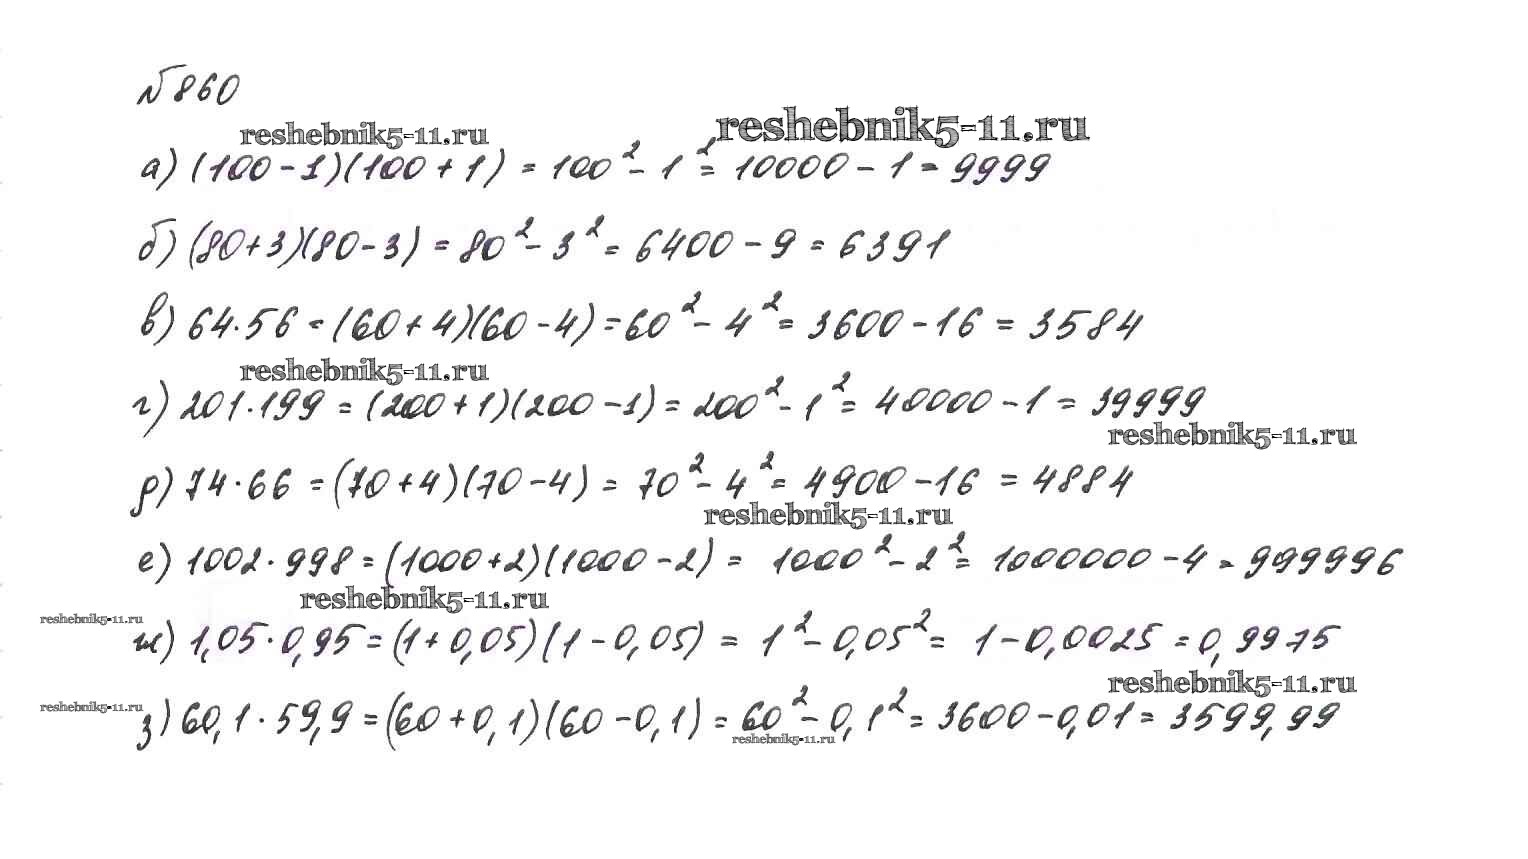 №860
reshebnik5-11.ru
reshebnik5-11.ru
а) (100-1)(100+1) = 100² - 1² = 10000 - 1 = 9999
б) (80+3)(80-3) = 80² - 3² = 6400 - 9 = 6391
в) 64·56 = (60+4)(60-4) = 60² - 4² = 3600 - 16 = 3584
reshebnik5-11.ru
г) 201·199 = (200+1)(200-1) = 200² - 1² = 40000 - 1 = 39999
reshebnik5-11.ru
д) 74·66 = (70+4)(70-4) = 70² - 4² = 4900 - 16 = 4884
reshebnik5-11.ru
е) 1002·998 = (1000+2)(1000-2) = 1000² - 2² = 1000000 - 4 = 999996
reshebnik5-11.ru
reshebnik5-11.ru
ж) 1,05·0,95 = (1+0,05)(1-0,05) = 1² - 0,05² = 1 - 0,0025 = 0,9975
reshebnik5-11.ru
reshebnik5-11.ru
з) 60,1·59,9 = (60+0,1)(60-0,1) = 60² - 0,1² = 3600 - 0,01 = 3599,99
reshebnik5-11.ru